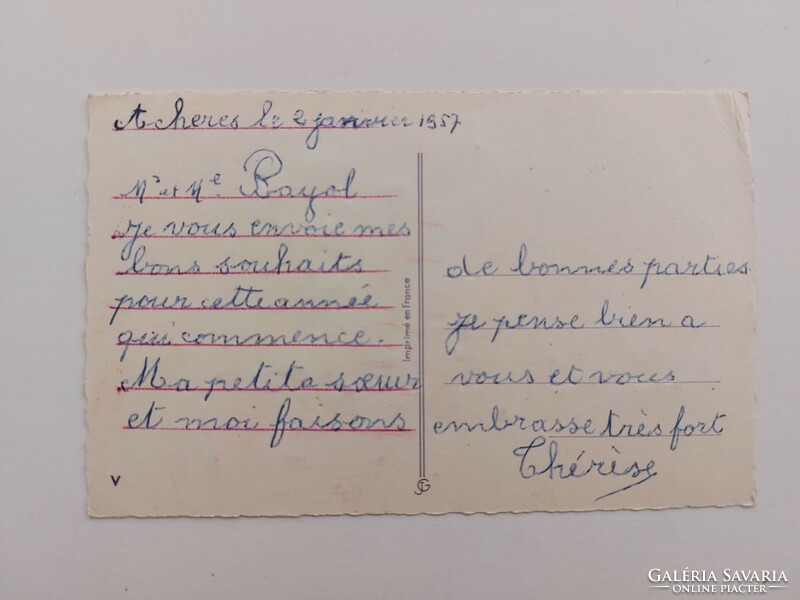 Acheres le 2 janvier 1957
Mr et Me Bayol
Je vous envoie mes
bons souhaits
pour cette année
qui commence.
Ma petite sœur
et moi faisons
de bonnes parties
je pense bien a
vous et vous
embrasse très fort
Thérèse
Imprimé en France
V
GALÉRIA SAVARIA
ONLINE PIACTÉR